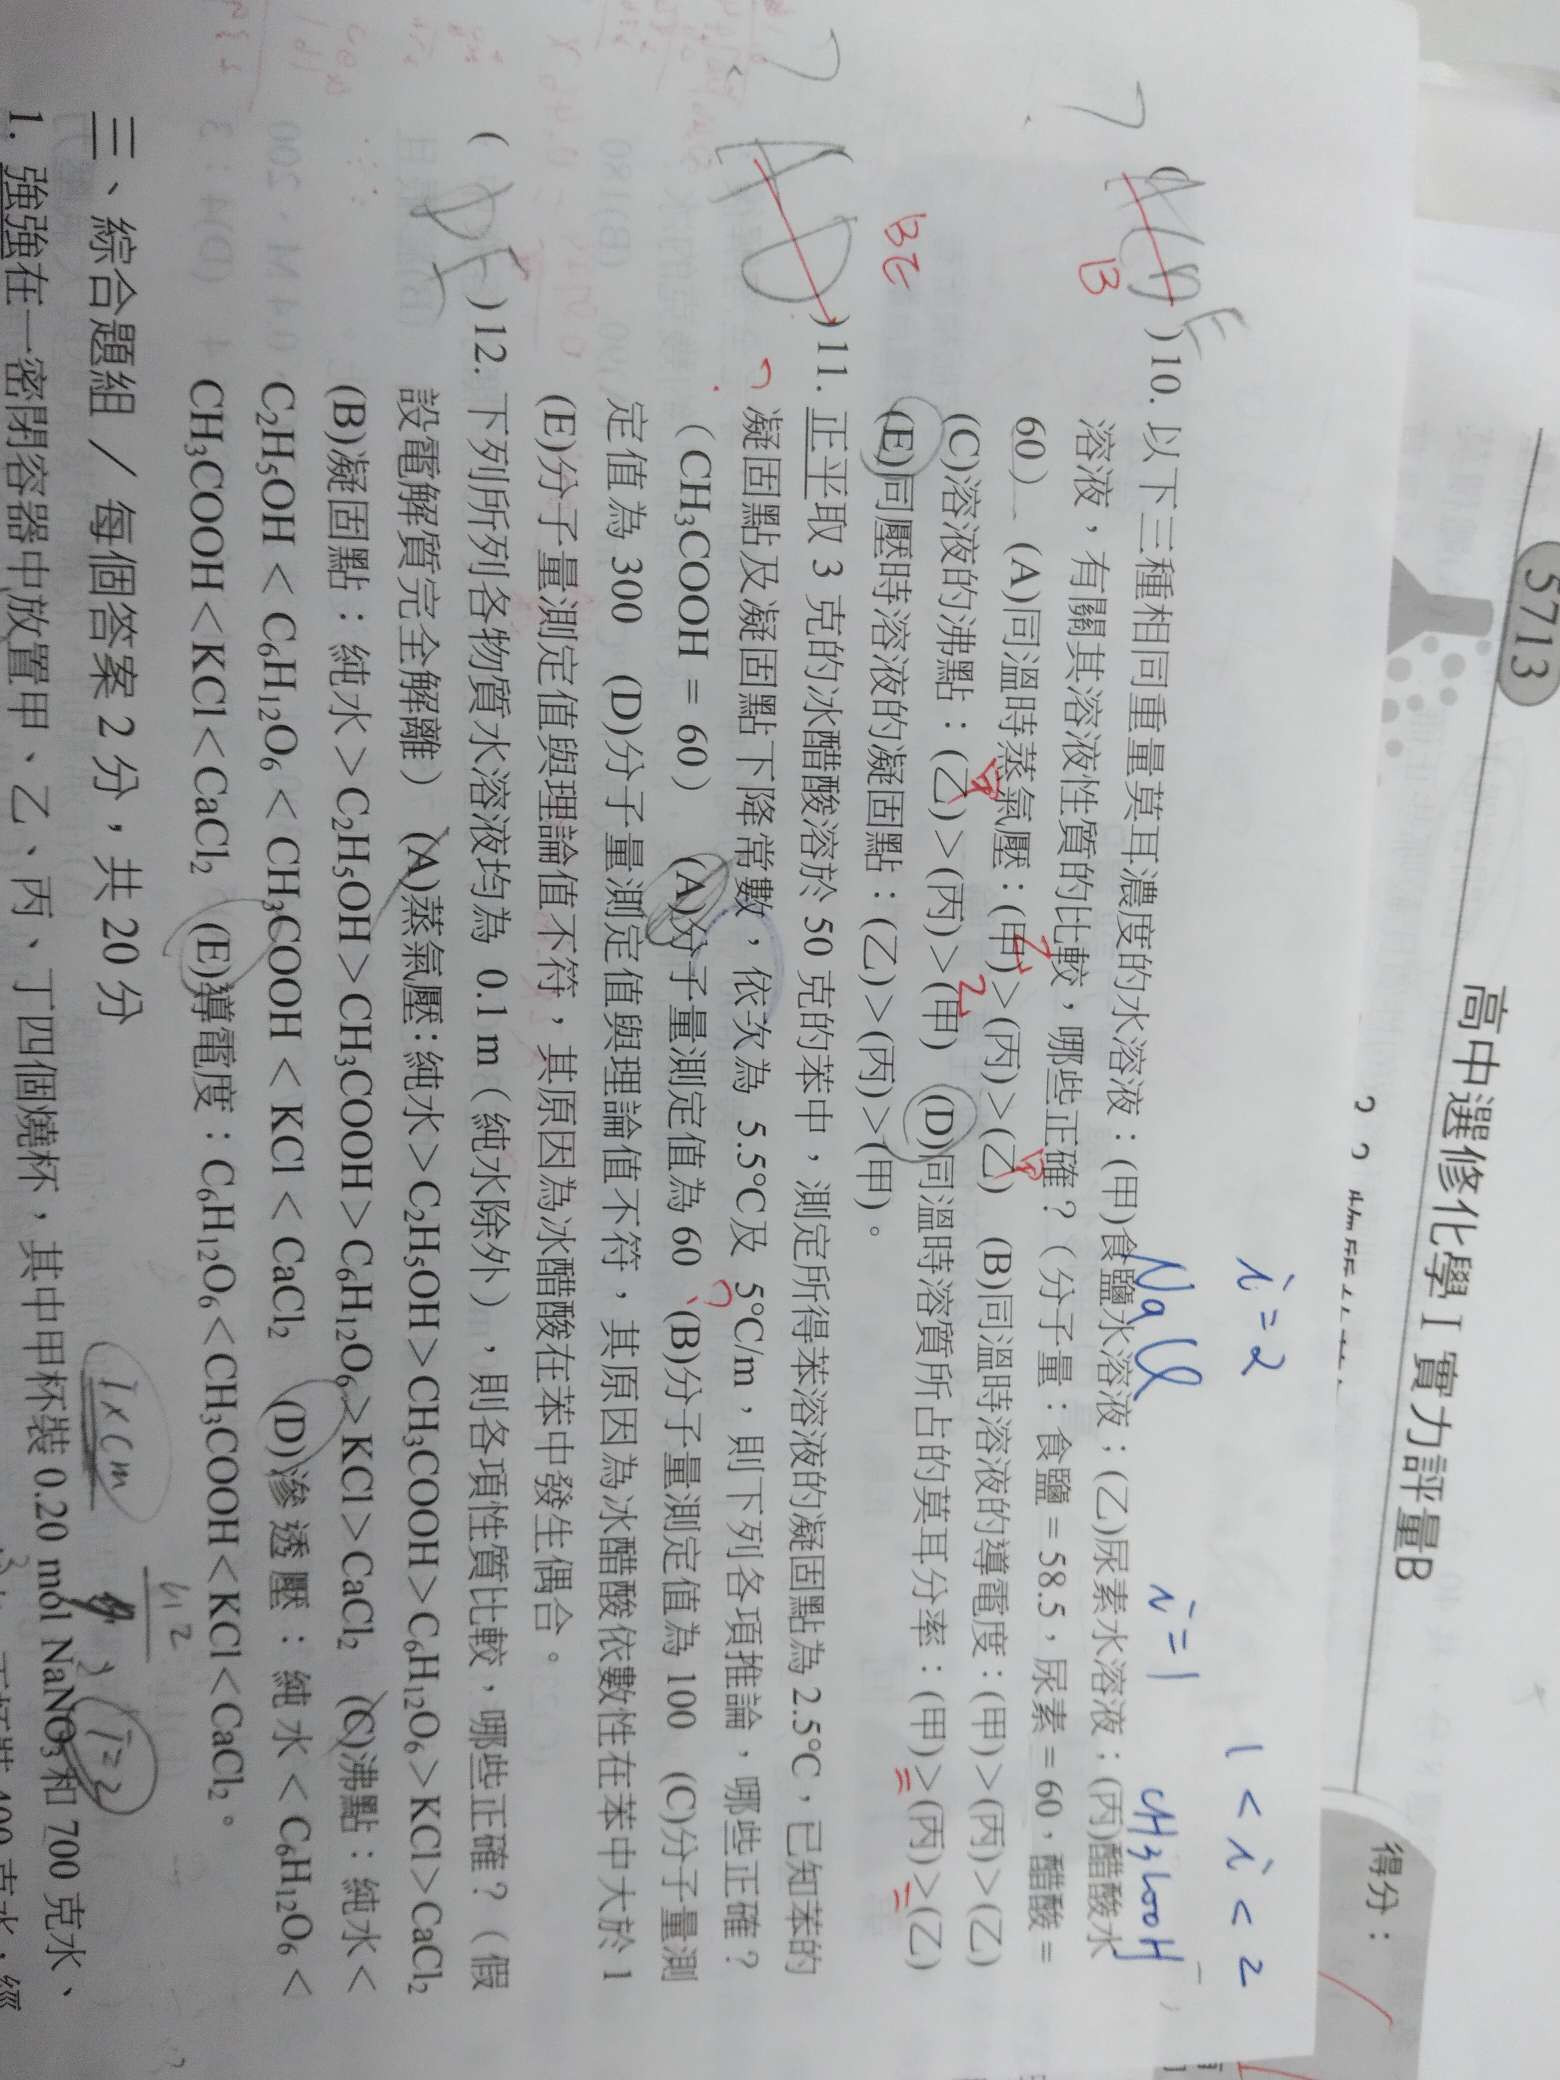 5713
高中選修化學 I 實力評量B
得分：
i = 2
i = 1
1 < i < 2
NaCl
CH3COOH
ADE
B
( )10. 以下三種相同重量莫耳濃度的水溶液：(甲)食鹽水溶液；(乙)尿素水溶液；(丙)醋酸水
溶液，有關其溶液性質的比較，哪些正確？（分子量：食鹽＝58.5，尿素＝60，醋酸＝
60） (A)同溫時蒸氣壓：(甲)＞(丙)＞(乙) (B)同溫時溶液的導電度：(甲)＞(丙)＞(乙)
(C)溶液的沸點：(乙)＞(丙)＞(甲) (D)同溫時溶質所占的莫耳分率：(甲)＞(丙)＞(乙)
(E)同壓時溶液的凝固點：(乙)＞(丙)＞(甲)。
= =
AD
BE
( )11. 正平取 3 克的冰醋酸溶於 50 克的苯中，測定所得苯溶液的凝固點為 2.5℃，已知苯的
凝固點及凝固點下降常數，依次為 5.5℃及 5℃/m，則下列各項推論，哪些正確？
（CH₃COOH = 60） (A)分子量測定值為 60 (B)分子量測定值為 100 (C)分子量測
定值為 300 (D)分子量測定值與理論值不符，其原因為冰醋酸依數性在苯中大於 1
(E)分子量測定值與理論值不符，其原因為冰醋酸在苯中發生偶合。
DE
( )12. 下列所列各物質水溶液均為 0.1 m（純水除外），則各項性質比較，哪些正確？（假
設電解質完全解離） (A)蒸氣壓：純水＞C₂H₅OH＞CH₃COOH＞C₆H₁₂O₆＞KCl＞CaCl₂
(B)凝固點：純水＞C₂H₅OH＞CH₃COOH＞C₆H₁₂O₆＞KCl＞CaCl₂ (C)沸點：純水＜
C₂H₅OH＜C₆H₁₂O₆＜CH₃COOH＜KCl＜CaCl₂ (D)滲透壓：純水＜C₆H₁₂O₆＜
CH₃COOH＜KCl＜CaCl₂ (E)導電度：C₆H₁₂O₆＜CH₃COOH＜KCl＜CaCl₂。
三、綜合題組／每個答案 2 分，共 20 分
i×Cm
i=2
1. 強強在一密閉容器中放置甲、乙、丙、丁四個燒杯，其中甲杯裝 0.20 mol NaNO₃和 700 克水、